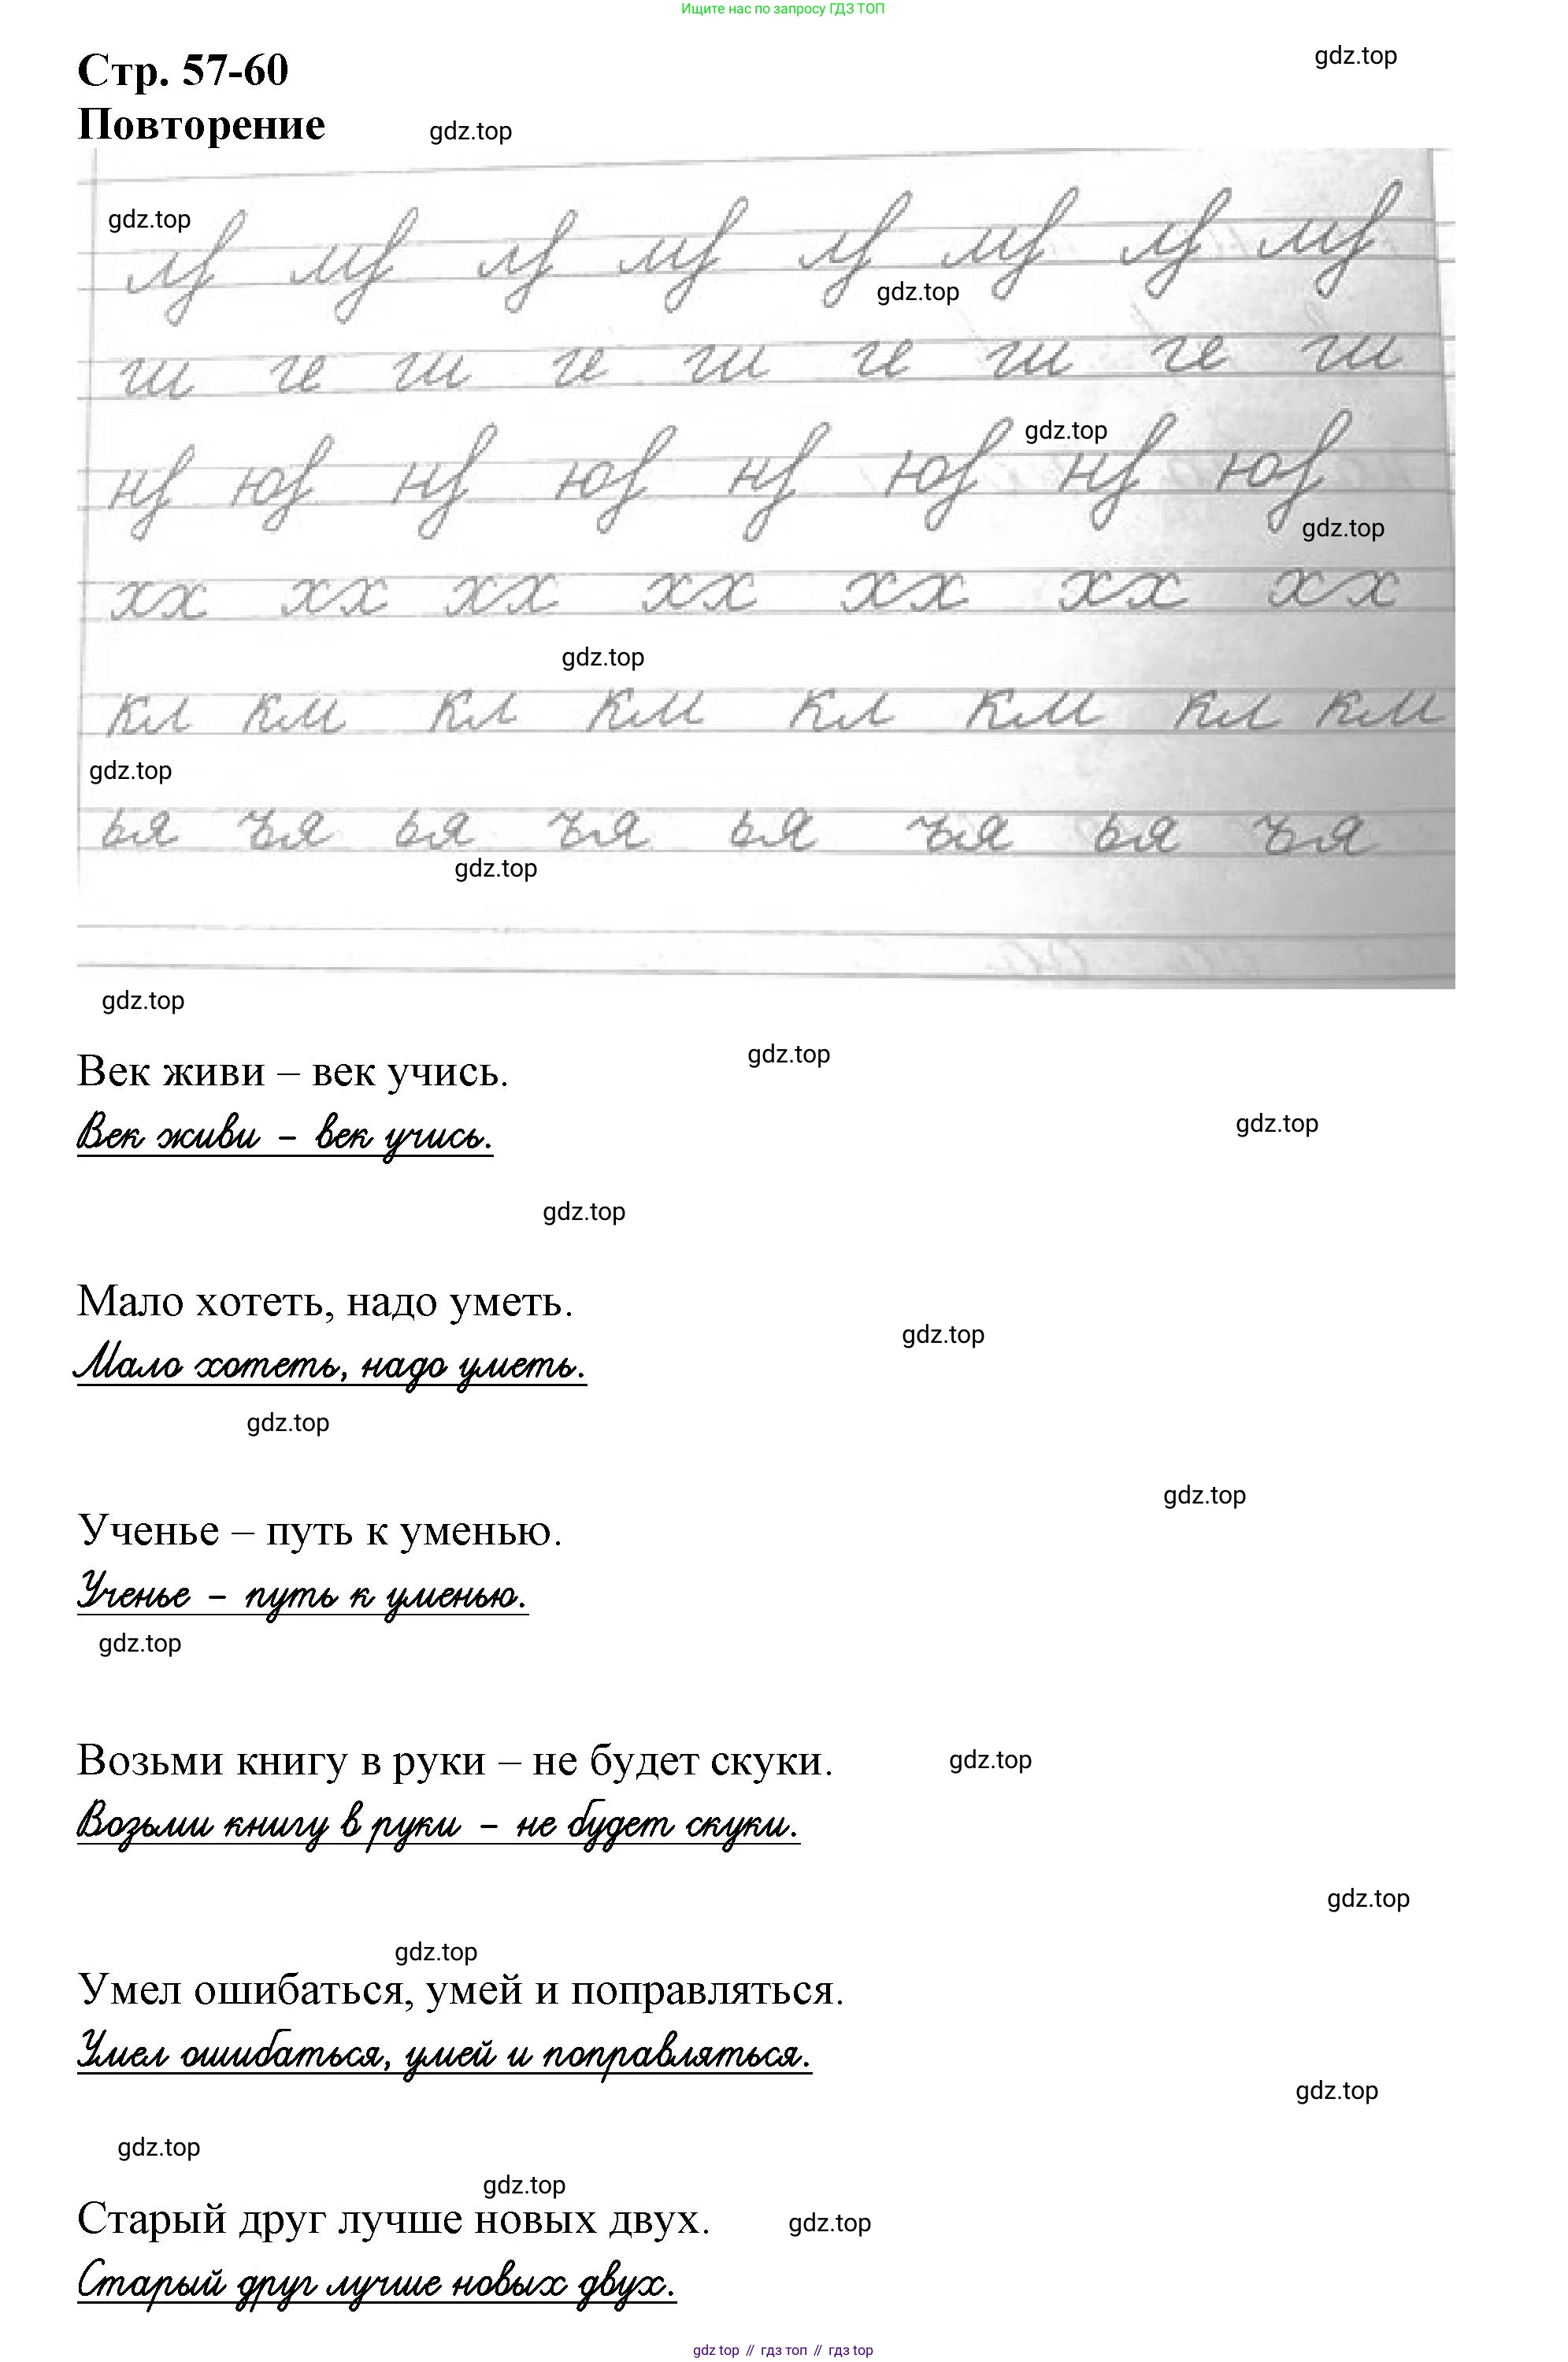 Ищите нас по запросу ГДЗ ТОП
gdz.top
Стр. 57-60
Повторение
gdz.top
gdz.top
gdz.top
ги ге ги ге ги ге ги ге ги
gdz.top
gdz.top
хх хх хх хх хх хх хх
gdz.top
кл км кл км кл км кл км
gdz.top
ья ъя ья ъя ья ъя ья ъя
gdz.top
gdz.top
gdz.top
Век живи – век учись.
gdz.top
Век живи – век учись.
gdz.top
Мало хотеть, надо уметь.
gdz.top
Мало хотеть, надо уметь.
gdz.top
gdz.top
Ученье – путь к уменью.
Ученье – путь к уменью.
gdz.top
Возьми книгу в руки – не будет скуки.
gdz.top
Возьми книгу в руки – не будет скуки.
gdz.top
gdz.top
Умел ошибаться, умей и поправляться.
Умел ошибаться, умей и поправляться.
gdz.top
gdz.top
gdz.top
Старый друг лучше новых двух.
gdz.top
Старый друг лучше новых двух.
gdz top // гдз топ // гдз top